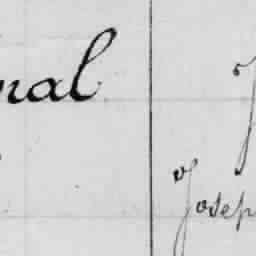 nal
J
Josep